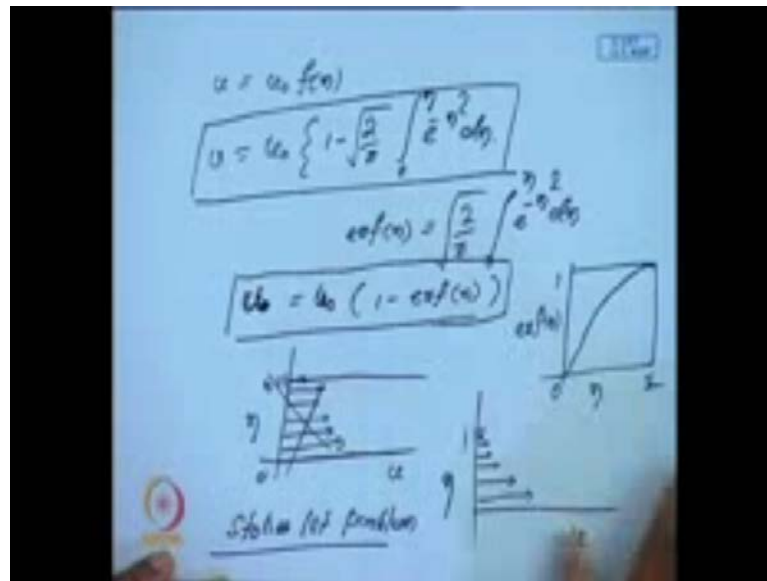 u = u₀ f(η)
u = u₀ { 1 - √(2/π) ∫₀^η e^-η² dη.
erf(η) = √(2/π) ∫ e^-η² dη
u = u₀ ( 1 - erf(η) )
1
erf(η)
0 η 2
η
0 u
1
η
u
Stokes 1st problem